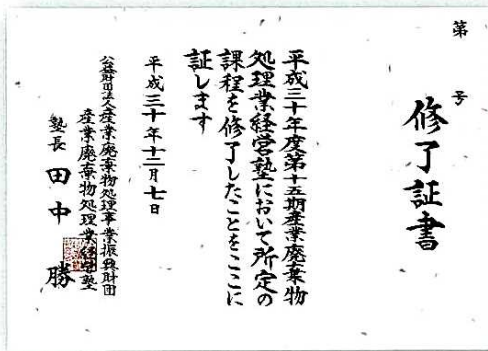 第　号
修了証書
平成三十年度第十五期産業廃棄物
処理業経営塾において所定の
課程を修了したことをここに
証します
平成三十年十二月七日
公益財団法人産業廃棄物処理事業振興財団
産業廃棄物処理業経営塾
塾長 田中 勝